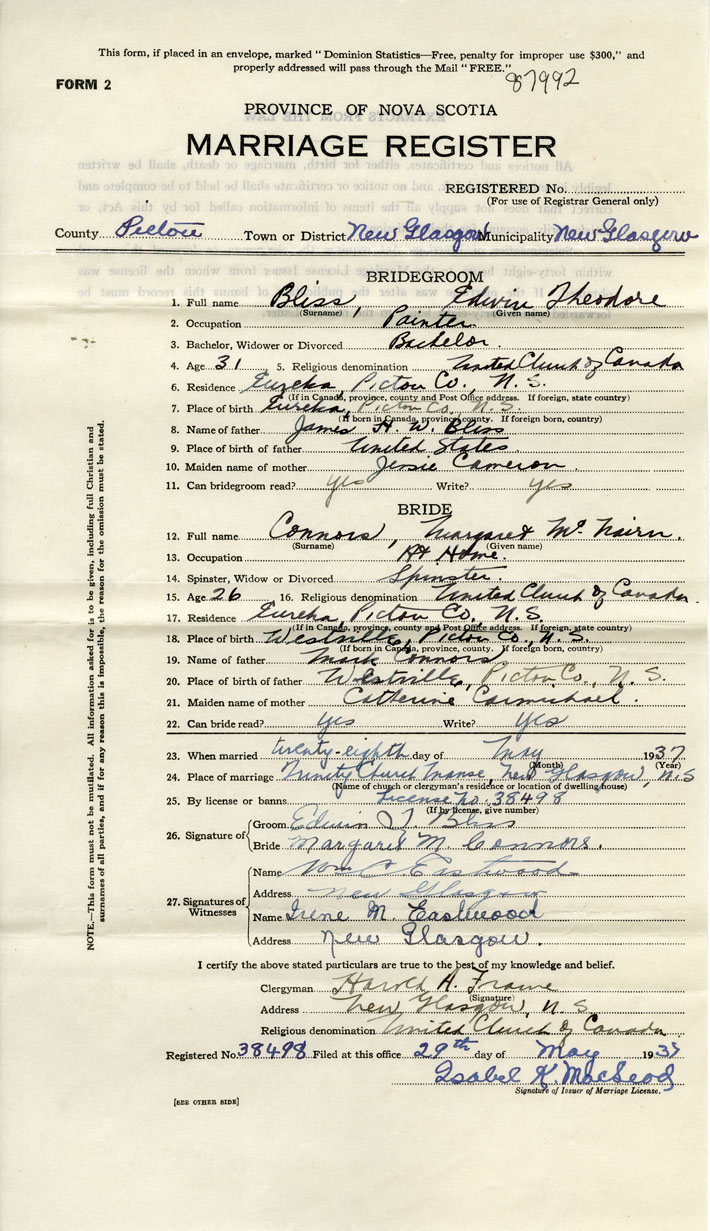 This form, if placed in an envelope, marked " Dominion Statistics—Free, penalty for improper use $300," and
properly addressed will pass through the Mail " FREE."
87992
FORM 2
PROVINCE OF NOVA SCOTIA
MARRIAGE REGISTER
REGISTERED No.
(For use of Registrar General only)
County Pictou Town or District New Glasgow Municipality New Glasgow
BRIDEGROOM
1. Full name Bliss, Edwin Theodore
(Surname) (Given name)
2. Occupation Painter
3. Bachelor, Widower or Divorced Bachelor.
4. Age 31 5. Religious denomination United Church of Canada
6. Residence Eureka, Pictou Co., N. S.
(If in Canada, province, county and Post Office address. If foreign, state country)
7. Place of birth Eureka, Pictou Co., N. S.
(If born in Canada, province, county. If foreign born, country)
8. Name of father James H. W. Bliss
9. Place of birth of father United States
10. Maiden name of mother Jessie Cameron
11. Can bridegroom read? yes Write? yes
BRIDE
12. Full name Connors, Margaret McNairn.
(Surname) (Given name)
13. Occupation At Home.
14. Spinster, Widow or Divorced Spinster.
15. Age 26 16. Religious denomination United Church of Canada.
17. Residence Eureka, Pictou Co., N. S.
(If in Canada, province, county and Post Office address. If foreign, state country)
18. Place of birth Westville, Pictou Co., N. S.
(If born in Canada, province, county. If foreign born, country)
19. Name of father Mark Connors
20. Place of birth of father Westville, Pictou Co., N. S.
21. Maiden name of mother Catherine Carmichael.
22. Can bride read? yes Write? yes
23. When married twenty-eighth day of May 1937
(Month) (Year)
24. Place of marriage Trinity Church Manse, New Glasgow, N.S
(Name of church or clergyman's residence or location of dwelling house)
25. By license or banns License no. 38498
(If by license, give number)
26. Signature of Groom Edwin T. Bliss
Bride Margaret M. Connors.
27. Signatures of Witnesses Name Wm C Eastwood
Address New Glasgow
Name Irene M. Eastwood
Address New Glasgow.
I certify the above stated particulars are true to the best of my knowledge and belief.
Clergyman Harold A. Frame
(Signature)
Address New Glasgow, N. S.
Religious denomination United Church of Canada
Registered No. 38498 Filed at this office 29th day of May 1937
Isabel K. MacLeod
Signature of Issuer of Marriage License.
[SEE OTHER SIDE]
NOTE.—This form must not be mutilated. All information asked for is to be given, including full Christian and
surnames of all parties, and if for any reason this is impossible, the reason for the omission must be stated.